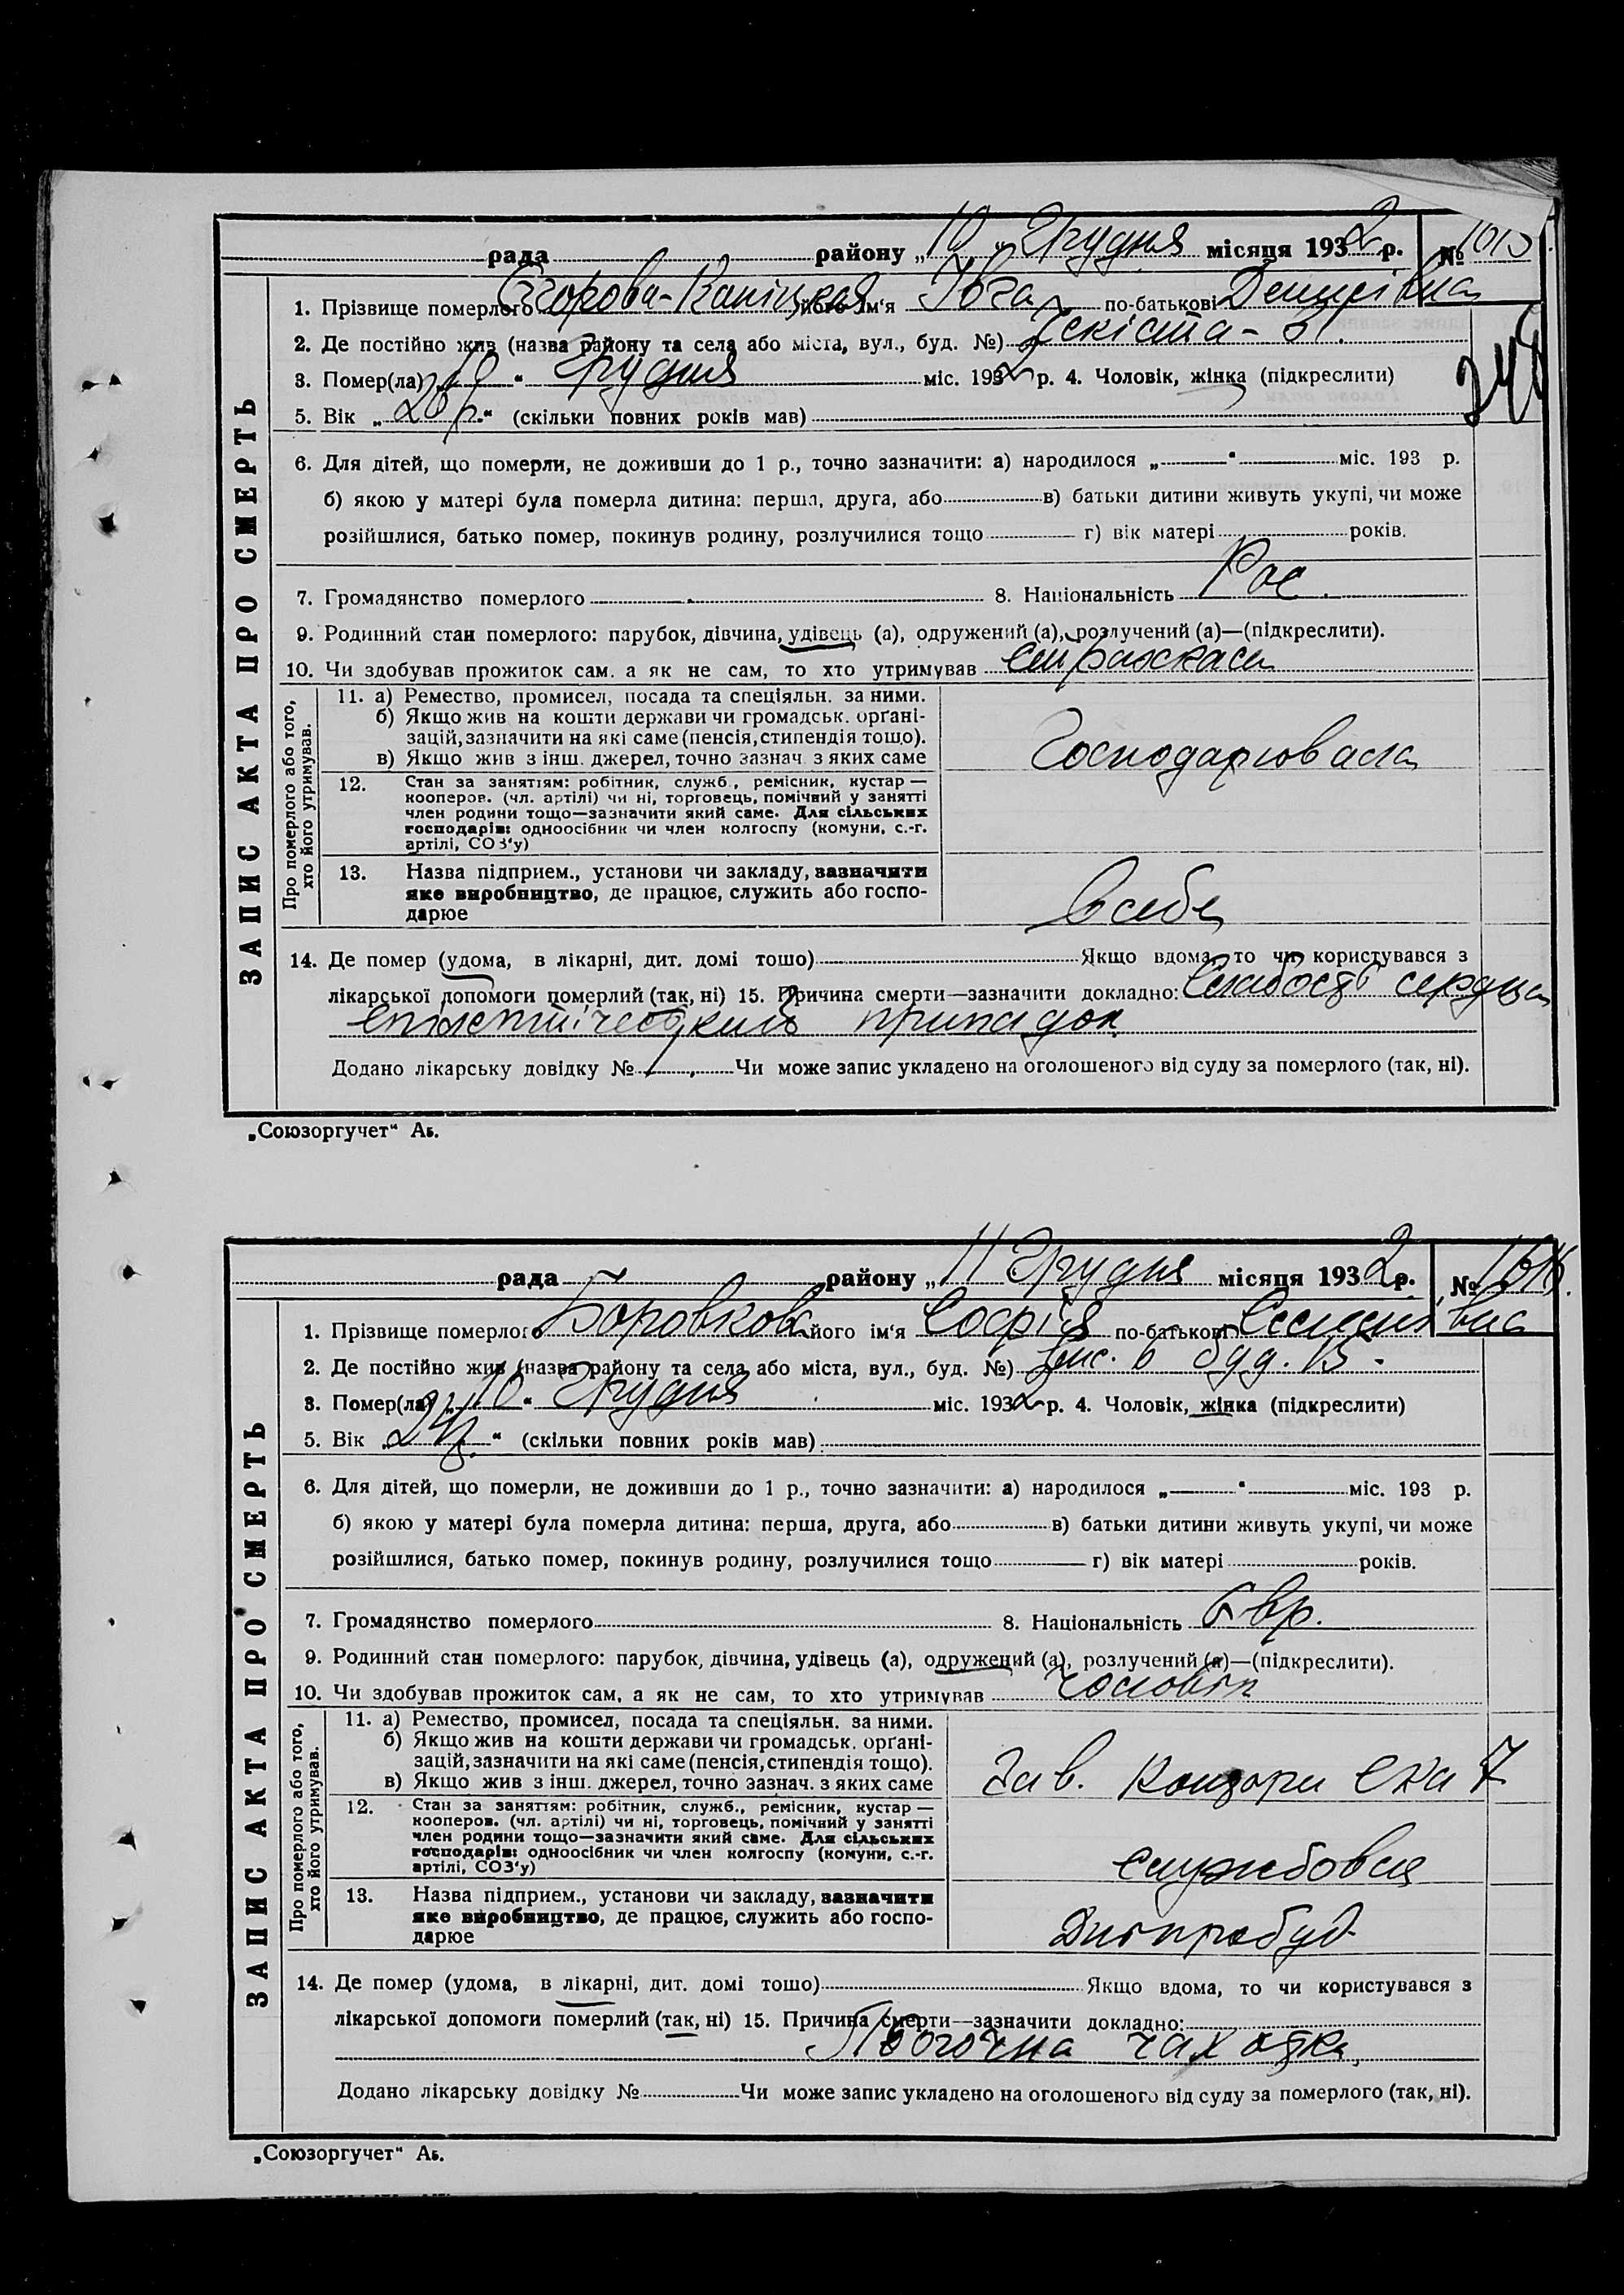 рада районˮу „10 „ Грудня місяця 1932 р. №
1. Прізвище померлого Єгорова- його ім'я по-батькові
2. Де постійно жив (назва району та села або міста, вул., буд. №)
3. Помер(ла) „10“ Грудня міс. 1932 р. 4. Чоловік, жінка (підкреслити)
248
5. Вік „26 р.“ (скільки повних років мав)
6. Для дітей, що померли, не доживши до 1 р., точно зазначити: а) народилося „ “ міс. 193 р.
б) якою у матері була померла дитина: перша, друга, або в) батьки дитини живуть укупі, чи може
розійшлися, батько помер, покинув родину, розлучилися тощо г) вік матері років.
7. Громадянство померлого 8. Національність Рос.
9. Родинний стан померлого: парубок, дівчина, удівець (а), одружений (а), розлучений (а)—(підкреслити).
10. Чи здобував прожиток сам, а як не сам, то хто утримував
Про померлого або того, хто його утримував.
11. а) Ремество, промисел, посада та спеціяльн. за ними.
б) Якщо жив на кошти держави чи громадськ. орґані-
зацій, зазначити на які саме (пенсія, стипендія тощо).
в) Якщо жив з інш. джерел, точно зазнач. з яких саме
Господарювала
12. Стан за заняттям: робітник, служб., ремісник, кустар —
кооперов. (чл. артілі) чи ні, торговець, помічний у занятті
член родини тощо—зазначити який саме. Для сільських
господарів: одноосібник чи член колгоспу (комуни, с.-г.
артілі, СОЗ'у)
13. Назва підприєм., установи чи закладу, зазначити
яке виробництво, де працює, служить або госпо-
дарює
в себе
14. Де помер (удома, в лікарні, дит. домі тощо) Якщо вдома, то чи користувався з
лікарської допомоги померлий (так, ні) 15. Причина смерти—зазначити докладно: Слабость сердца
припадок
Додано лікарську довідку № Чи може запис укладено на оголошеного від суду за померлого (так, ні).
ЗАПИС АКТА ПРО СМЕРТЬ
„Союзоргучет“ Аь.
рада району „11 „ Грудня місяця 1932 р. №
1. Прізвище померлого Боровкова його ім'я Софія по-батькові
2. Де постійно жив (назва району та села або міста, вул., буд. №) 6 буд. 15.
3. Помер(ла) „10“ Грудня міс. 1932 р. 4. Чоловік, жінка (підкреслити)
5. Вік „24 р.“ (скільки повних років мав)
6. Для дітей, що померли, не доживши до 1 р., точно зазначити: а) народилося „ “ міс. 193 р.
б) якою у матері була померла дитина: перша, друга, або в) батьки дитини живуть укупі, чи може
розійшлися, батько помер, покинув родину, розлучилися тощо г) вік матері років.
7. Громадянство померлого 8. Національність Євр.
9. Родинний стан померлого: парубок, дівчина, удівець (а), одружений (а), розлучений (а)—(підкреслити).
10. Чи здобував прожиток сам, а як не сам, то хто утримував чоловік
Про померлого або того, хто його утримував.
11. а) Ремество, промисел, посада та спеціяльн. за ними.
б) Якщо жив на кошти держави чи громадськ. орґані-
зацій, зазначити на які саме (пенсія, стипендія тощо).
в) Якщо жив з інш. джерел, точно зазнач. з яких саме
Зав.
12. Стан за заняттям: робітник, служб., ремісник, кустар —
кооперов. (чл. артілі) чи ні, торговець, помічний у занятті
член родини тощо—зазначити який саме. Для сільських
господарів: одноосібник чи член колгоспу (комуни, с.-г.
артілі, СОЗ'у)
службовец
13. Назва підприєм., установи чи закладу, зазначити
яке виробництво, де працює, служить або госпо-
дарює
Дніпробуд
14. Де помер (удома, в лікарні, дит. домі тощо) Якщо вдома, то чи користувався з
лікарської допомоги померлий (так, ні) 15. Причина смерти—зазначити докладно:
чахотка
Додано лікарську довідку № Чи може запис укладено на оголошеного від суду за померлого (так, ні).
ЗАПИС АКТА ПРО СМЕРТЬ
„Союзоргучет“ Аь.